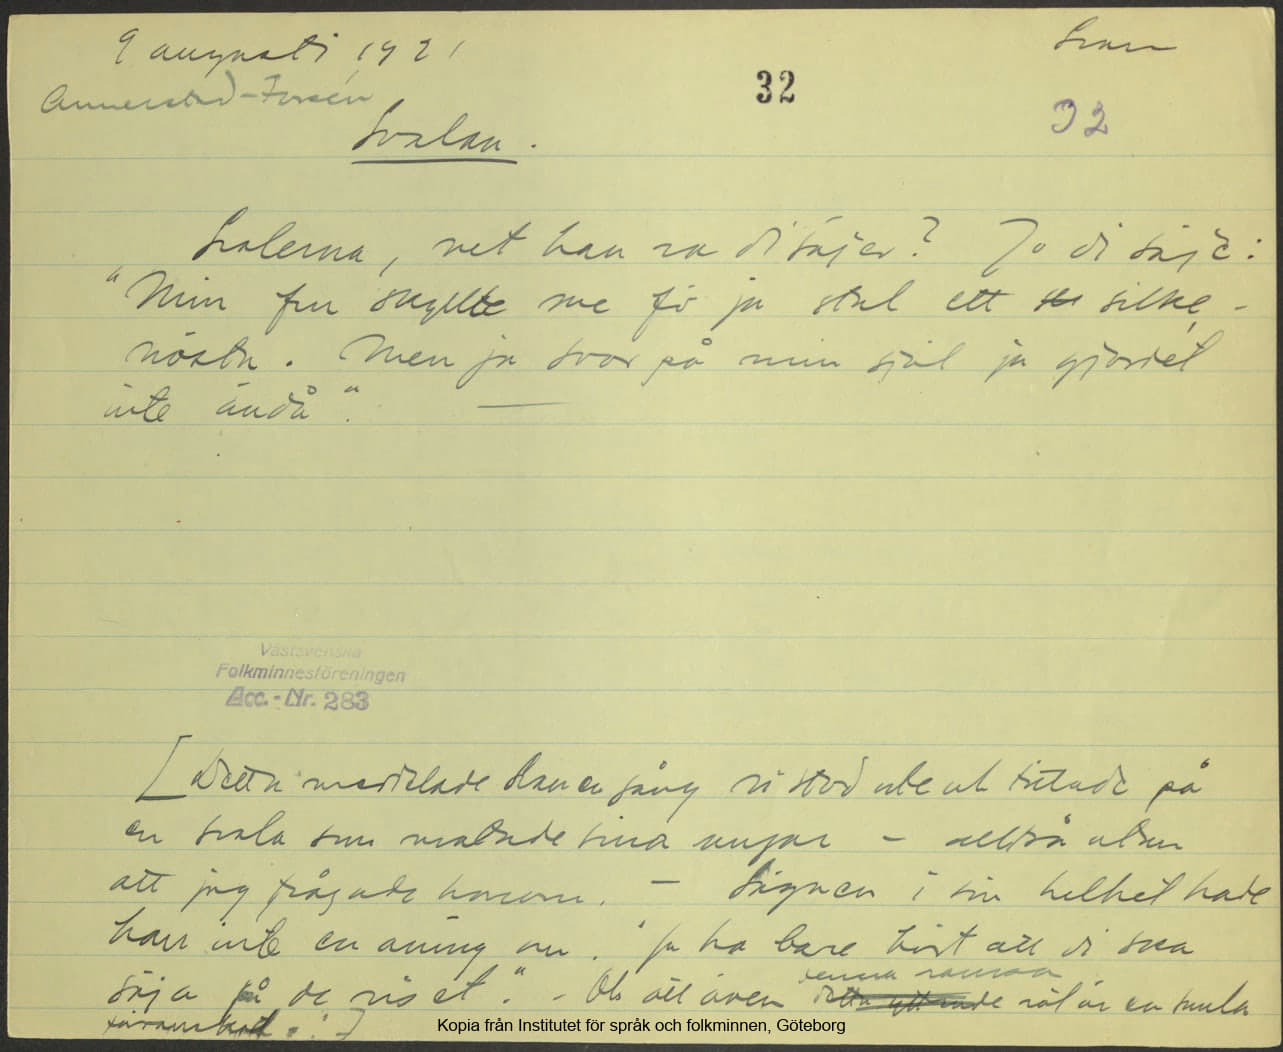 9 augusti 1921
Svan
32
Annerstad-Forsén
32
Svalan.
Svalerna, vet han va di säjer? Jo di säjer:
"Min fru skyllte me för ja stal ett silke-
nösta. Men ja svor på min själ ja gjordet
inte ändå".
Västsvenska
Folkminnesföreningen
Acc.-Nr. 283
[Detta meddelade han en gång vi stod ute och tittade på
en svala som matade sina ungar - alltså utan
att jag frågade honom. - Sägnen i sin helhet hade
han inte en aning om. "Ja ha bare hört att di ska
säja på de viset". - Obs att även denna ramsa
är en smula
Kopia från Institutet för språk och folkminnen, Göteborg